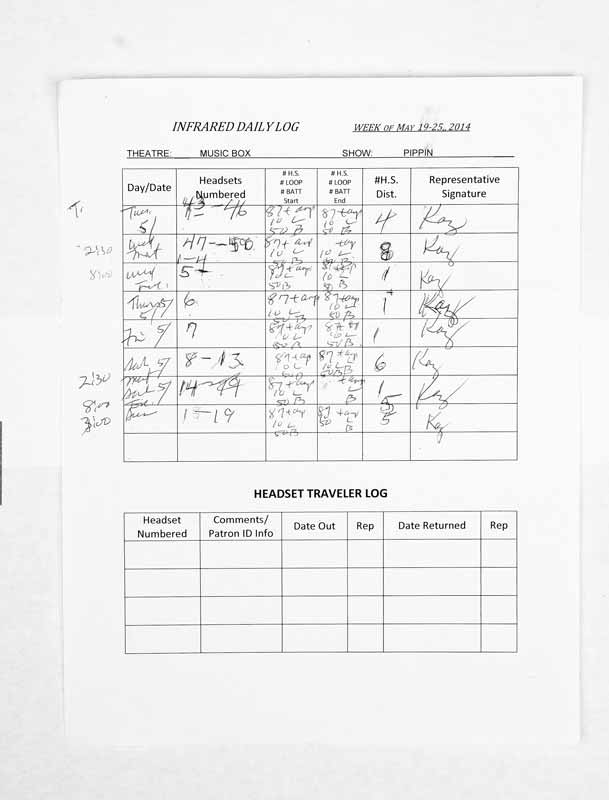 INFRARED DAILY LOG WEEK OF MAY 19-25,, 2014
THEATRE: MUSIC BOX SHOW: PIPPIN
Day/Date Headsets Numbered # H.S. # LOOP # BATT Start # H.S. # LOOP # BATT End #H.S. Dist. Representative Signature
T. Tues 5/ 43-46 87+amp 10 L 50 B 87+amp 10 L 50 B 4 Kaz
2:30 Wed mat 47-50 1-4 87+amp 10 L 50 B +amp 10 L 50 B 8 Kaz
8:00 Wed Eve. 5 87+amp 10 L 50B 87+amp 10 L 50 B 1 Kaz
Thurs 5/ 6 87+amp 10 L 50 B 87+amp 10 L 50 B 1 Kaz
Fri 5/ 7 87+amp 10 L 50 B 87+amp 10 L 50 B 1 Kaz
2:30 Sat 5/ mat 8-13 87+amp 10 L 50 B 87+amp 10 L 50 B 6 Kaz
8:00 Sat 5/ Eve. 87+amp 10 L 50 B +amp L B Kaz
3:00 Sun 19 87+amp 10 L 50 B 87 +amp 50 L B 5 Kaz
HEADSET TRAVELER LOG
Headset Numbered Comments/ Patron ID Info Date Out Rep Date Returned Rep